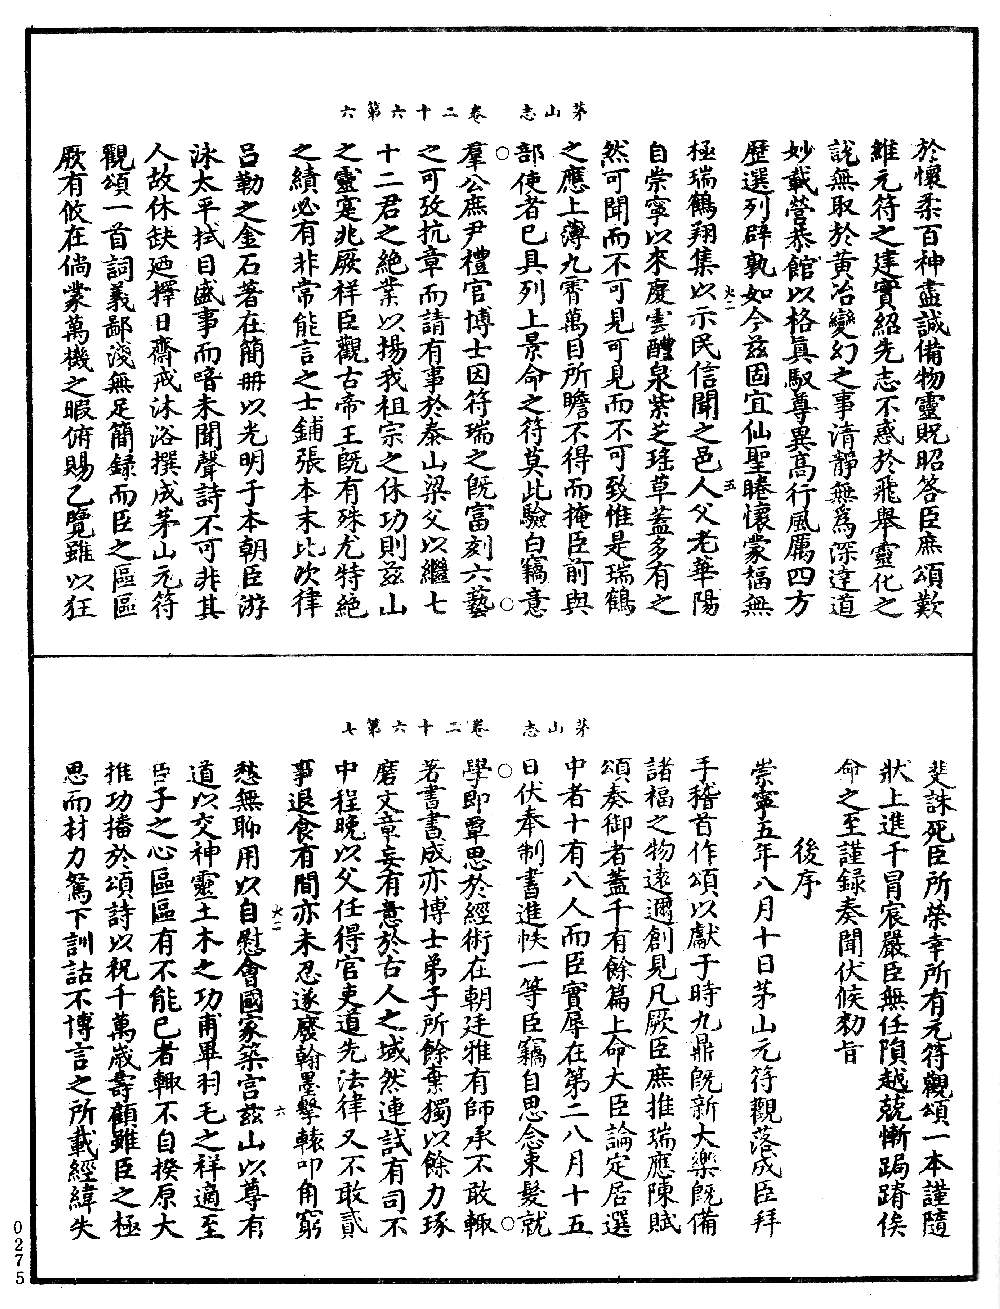 茅山志　卷二十六第六
於懷柔百神盡誠備物靈貺昭答臣庶頌歎
維元符之建實紹先志不惑於飛舉靈化之
說無取於黃冶變幻之事清靜無爲深達道
妙載營恭館以格眞馭尊異高行風厲四方
歷選列辟孰如今茲固宜仙聖睠懷蒙福無
極瑞鶴翔集以示民信聞之邑人父老華陽
自崇寧以來慶雲醴泉紫芝瑤草蓋多有之
然可聞而不可見可見而不可致惟是瑞鶴
之應上薄九霄萬目所瞻不得而掩臣前與
部使者已具列上景命之符莫此驗白竊意
羣公庶尹禮官博士因符瑞之旣富刻六藝
之可攷抗章而請有事於泰山梁父以繼七
十二君之絶業以揚我祖宗之休功則茲山
之靈寔兆厥祥臣觀古帝王旣有殊尤特絶
之績必有非常能言之士鋪張本末比次律
呂勒之金石著在簡冊以光明于本朝臣游
泳太平拭目盛事而喑未聞聲詩不可非其
人故休缺廼擇日齋戒沐浴撰成茅山元符
觀頌一首詞義鄙淺無足簡録而臣之區區
厥有攸在倘蒙萬機之暇俯賜乙覽雖以狂
火二
五
茅山志　卷二十六第七
斐誅死臣所榮幸所有元符觀頌一本謹隨
狀上進干冒宸嚴臣無任隕越兢慚跼蹐俟
命之至謹録奏聞伏候勑旨
後序
崇寧五年八月十日茅山元符觀落成臣拜
手稽首作頌以獻于時九鼎旣新大樂旣備
諸福之物遠邇創見凡厥臣庶推瑞應陳賦
頌奏御者蓋千有餘篇上命大臣論定居選
中者十有八人而臣實辱在第二八月十五
日伏奉制書進帙一等臣竊自思念束髮就
學即覃思於經術在朝廷雅有師承不敢輒
著書書成亦博士弟子所餘棄獨以餘力琢
磨文章妄有意於古人之域然連試有司不
中程晚以父任得官吏道先法律又不敢貳
事退食有間亦未忍遂廢翰墨擊轅叩角窮
愁無聊用以自慰會國家築宫茲山以尊有
道以交神靈土木之功甫畢羽毛之祥適至
臣子之心區區有不能已者輒不自揆原大
推功播於頌詩以祝千萬歲壽顧雖臣之極
思而材力駑下訓詁不博言之所載經緯失
火二
六
0275